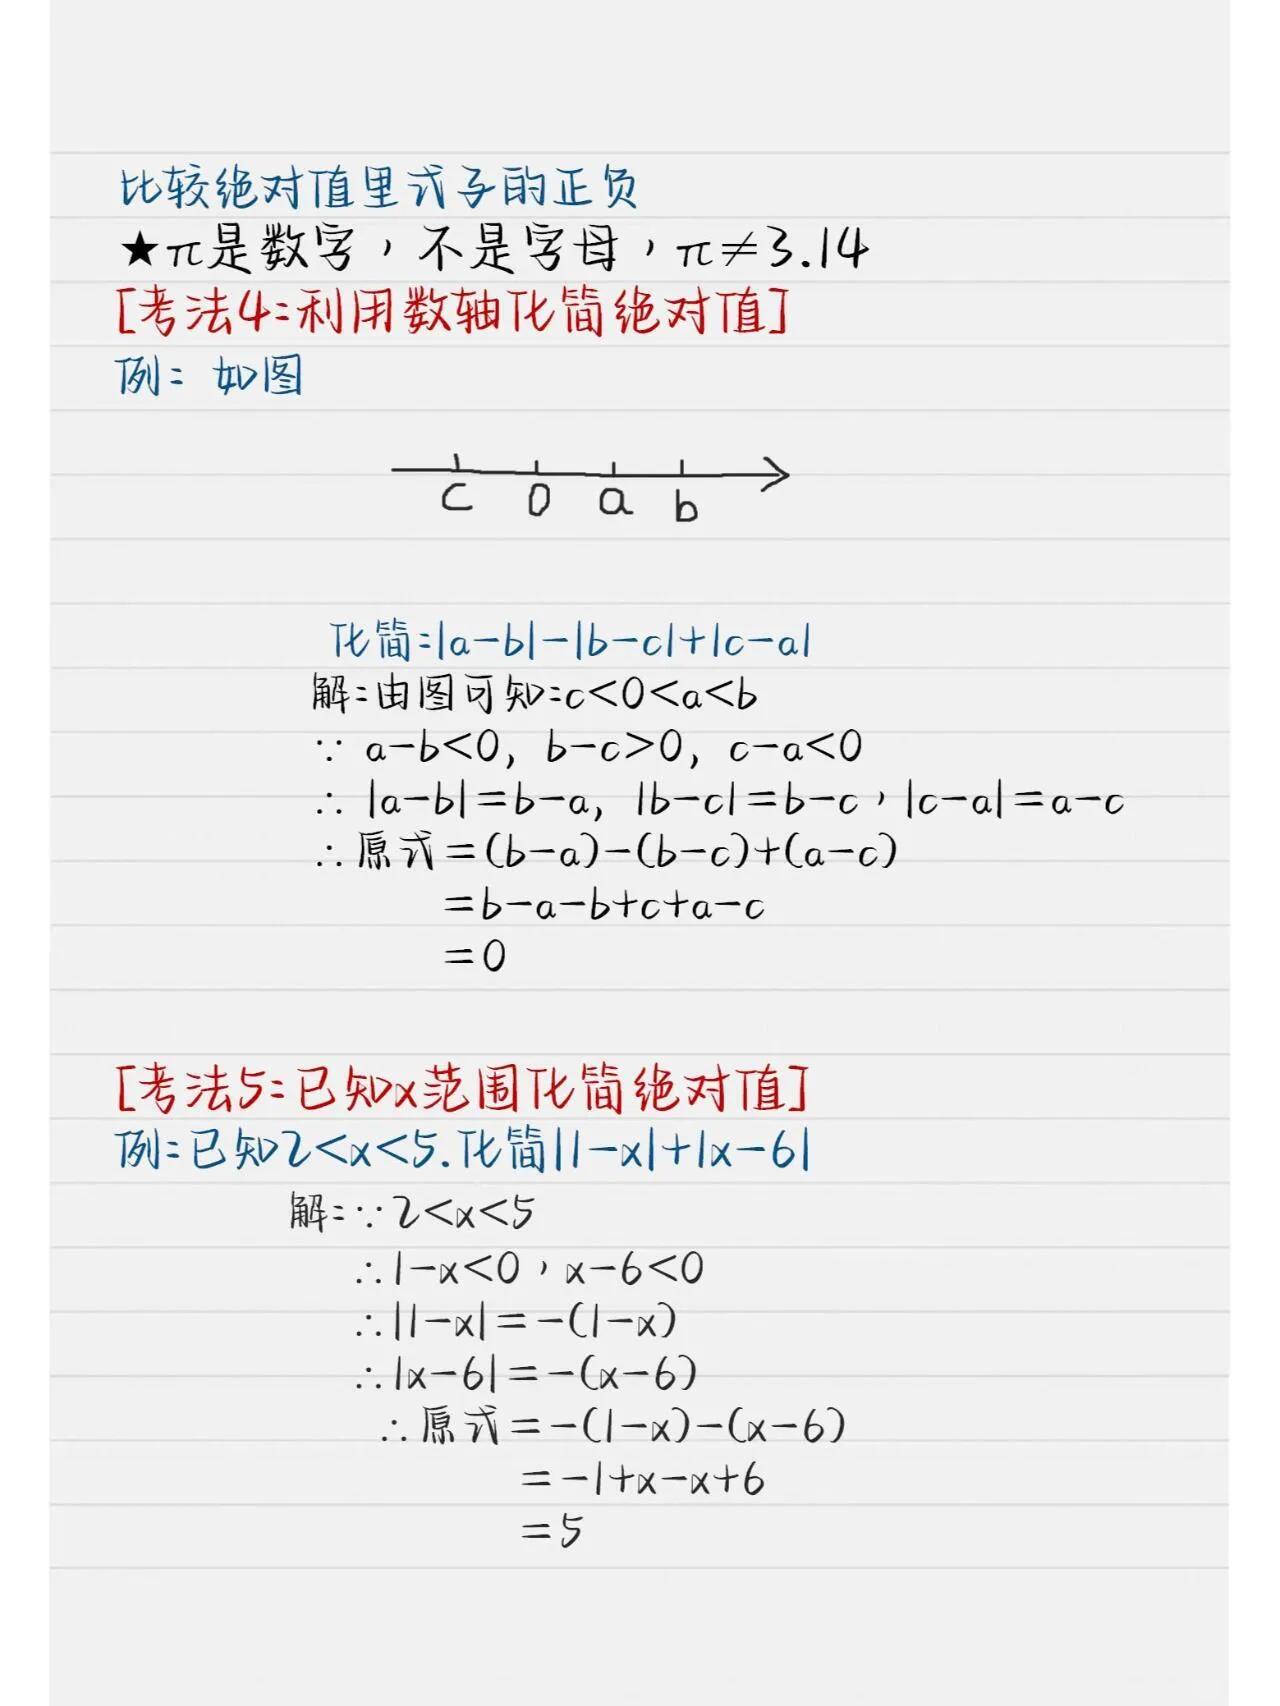 比较绝对值里式子的正负
★π是数字，不是字母，π≠3.14
[考法4:利用数轴化简绝对值]
例: 如图
c 0 a b
化简:|a-b|-|b-c|+|c-a|
解:由图可知:c<0<a<b
∵ a-b<0, b-c>0, c-a<0
∴ |a-b|=b-a, |b-c|=b-c，|c-a|=a-c
∴原式=(b-a)-(b-c)+(a-c)
=b-a-b+c+a-c
=0
[考法5:已知x范围化简绝对值]
例:已知2<x<5.化简|1-x|+|x-6|
解:∵2<x<5
∴1-x<0，x-6<0
∴|1-x|=-(1-x)
∴|x-6|=-(x-6)
∴原式=-(1-x)-(x-6)
=-1+x-x+6
=5